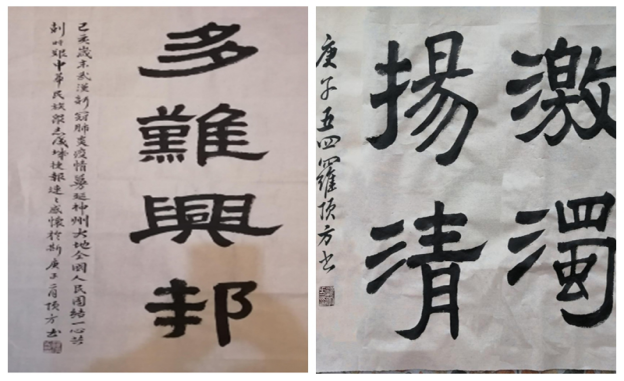 多難興邦
己亥歲末武漢新冠肺炎疫情蔓延神州大地全國人民團結一心共
刻時艱中華民族眾志成城捷報連連感懷於斯庚子二月頂方書
激濁
揚清
庚子五四羅頂方書